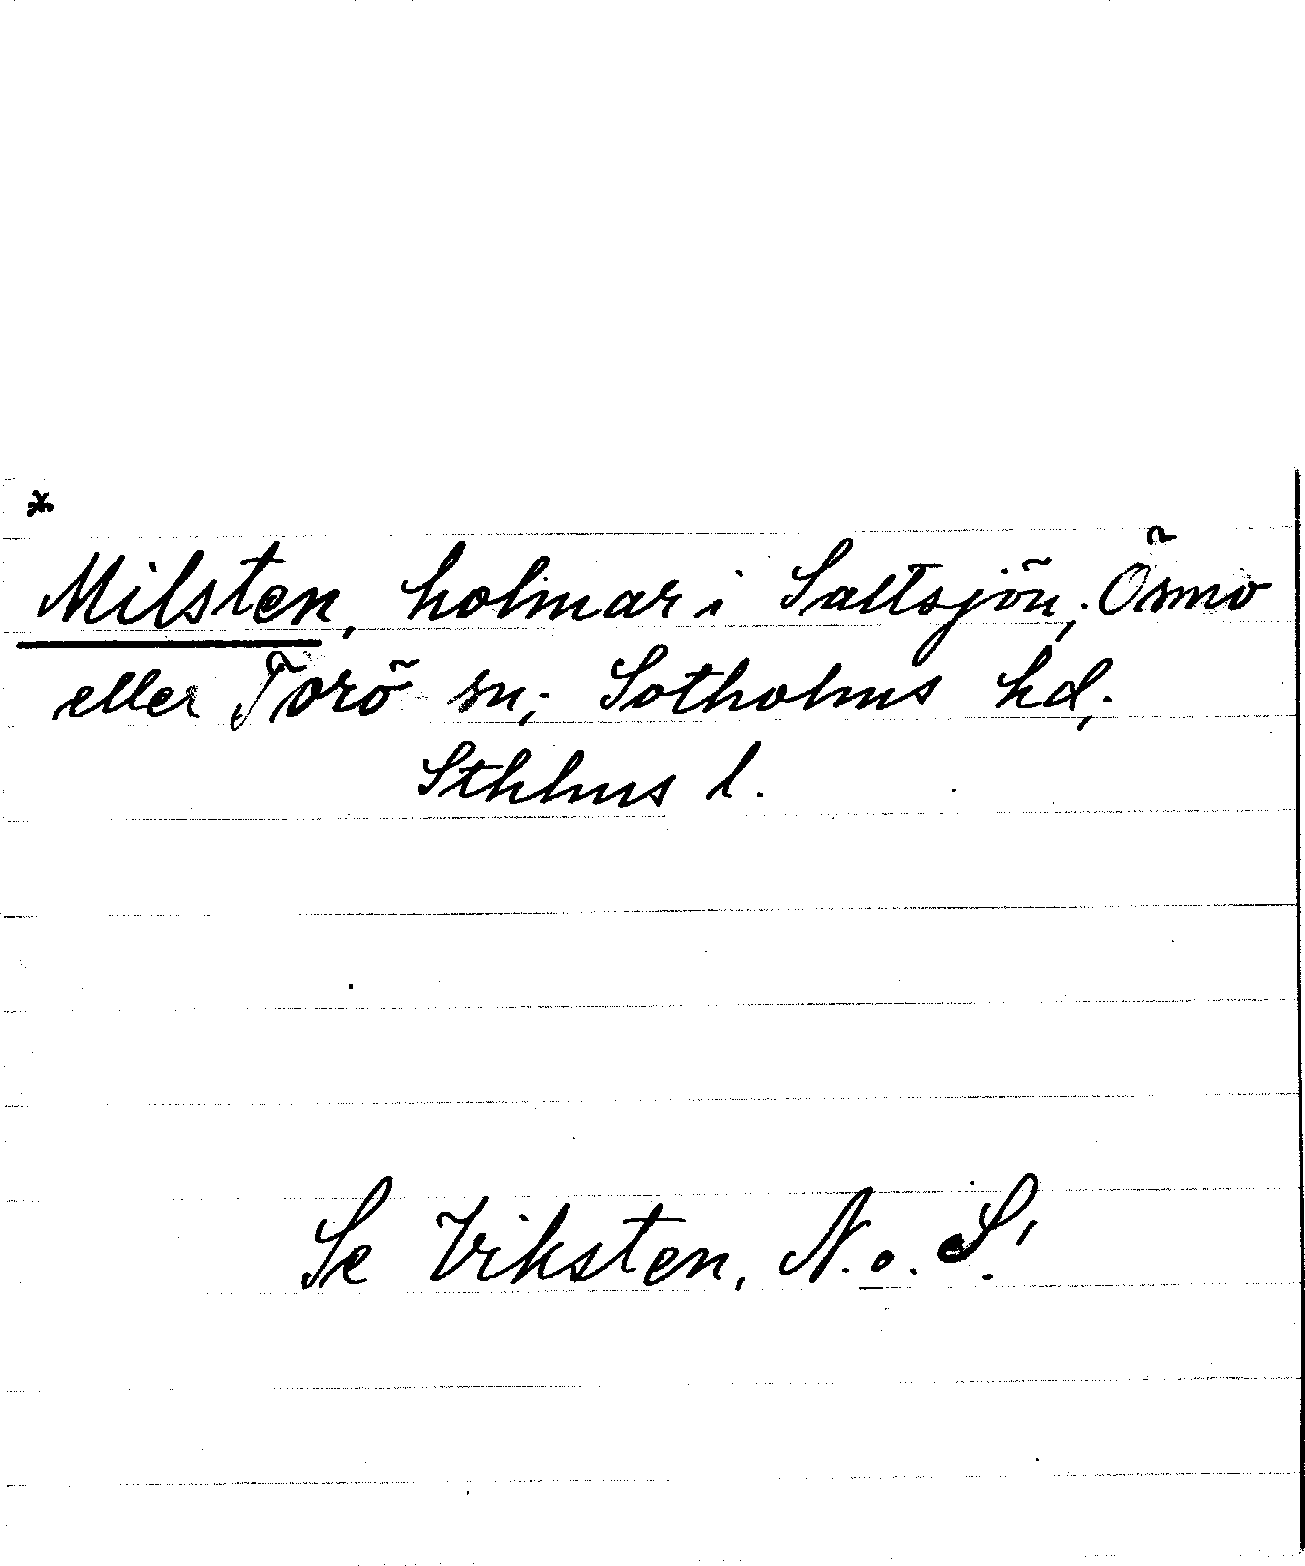 *
Milsten, holmar i Saltsjön; Ösmo
eller Torö sn; Sotholms hd;
Sthlms l.
Se Viksten, N. o. S.